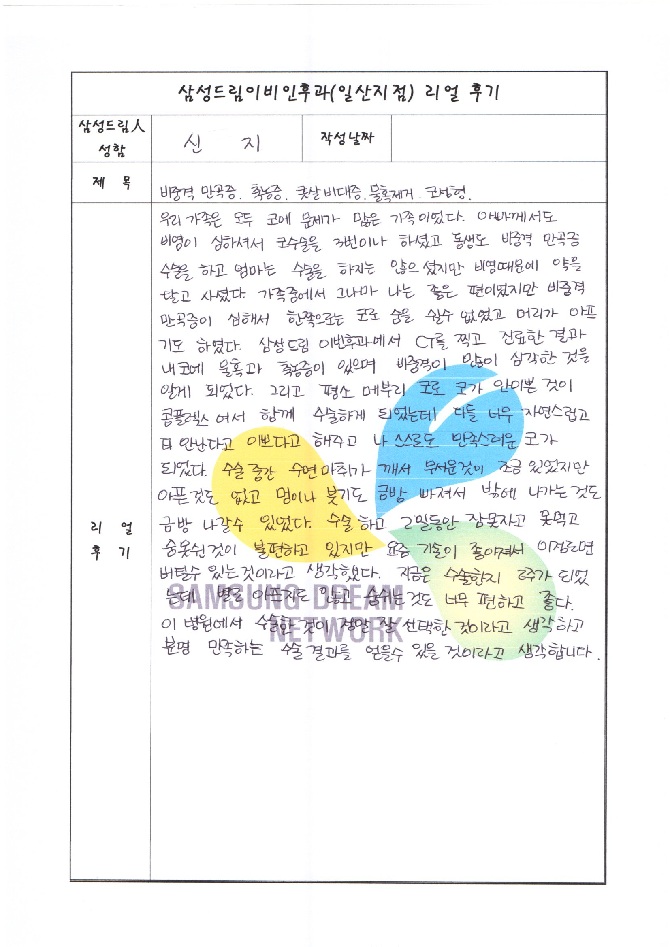 삼성드림이비인후과(일산지점) 리얼 후기
삼성드림人 성함
신 지
작성날짜
제 목
비중격 만곡증, 축농증, 콧살 비대증, 물혹제거, 코성형.
리 얼 후 기
우리 가족은 모두 코에 문제가 많은 가족이었다. 아빠께서도
비염이 심하셔서 코수술을 3번이나 하셨고 동생도 비중격 만곡증
수술을 하고 엄마는 수술을 하지는 않으셨지만 비염때문에 약을
달고 사셨다. 가족중에서 그나마 나는 좋은 편이었지만 비중격
만곡증이 심해서 한쪽으로는 코로 숨을 쉴수 없었고 머리가 아프
기도 하였다. 삼성드림 이빈후과에서 CT를 찍고 진료한 결과
내코에 물혹과 축농증이 있으며 비중격이 많이 심각한 것을
알게 되었다. 그리고 평소 메부리 코로 코가 안이쁜 것이
콤플렉스 여서 함께 수술하게 되었는데 다들 너무 자연스럽고
티 안난다고 이쁘다고 해주고 나 스스로도 만족스러운 코가
되었다. 수술 중간 수면 마취가 깨서 무서운것이 조금 있었지만
아픈것도 없고 멍이나 붓기도 금방 빠져서 밖에 나가는것도
금방 나갈수 있었다. 수술 하고 2일동안 잠못자고 못먹고
숨못쉰것이 불편하고 있지만 요즘 기술이 좋아져서 이정도면
버틸수 있는것이라고 생각했다. 지금은 수술한지 2주가 되었
는데 별로 아프지도 않고 숨쉬는것도 너무 편하고 좋다.
이 병원에서 수술한 것이 정말 잘 선택한 것이라고 생각하고
분명 만족하는 수술 결과를 얻을수 있을 것이라고 생각합니다.
SAMSUNG DREAM
NETWORK